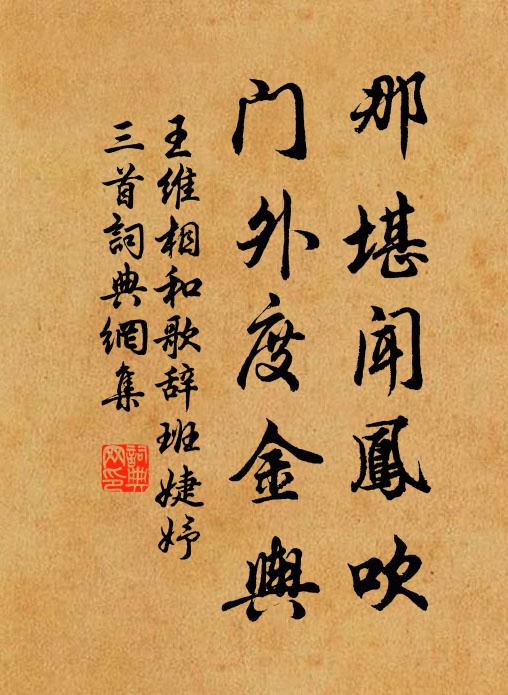 那堪闻鳳吹
门外度金輿
王维相和歌辞班婕妤
三首詞典網集
詞典网印